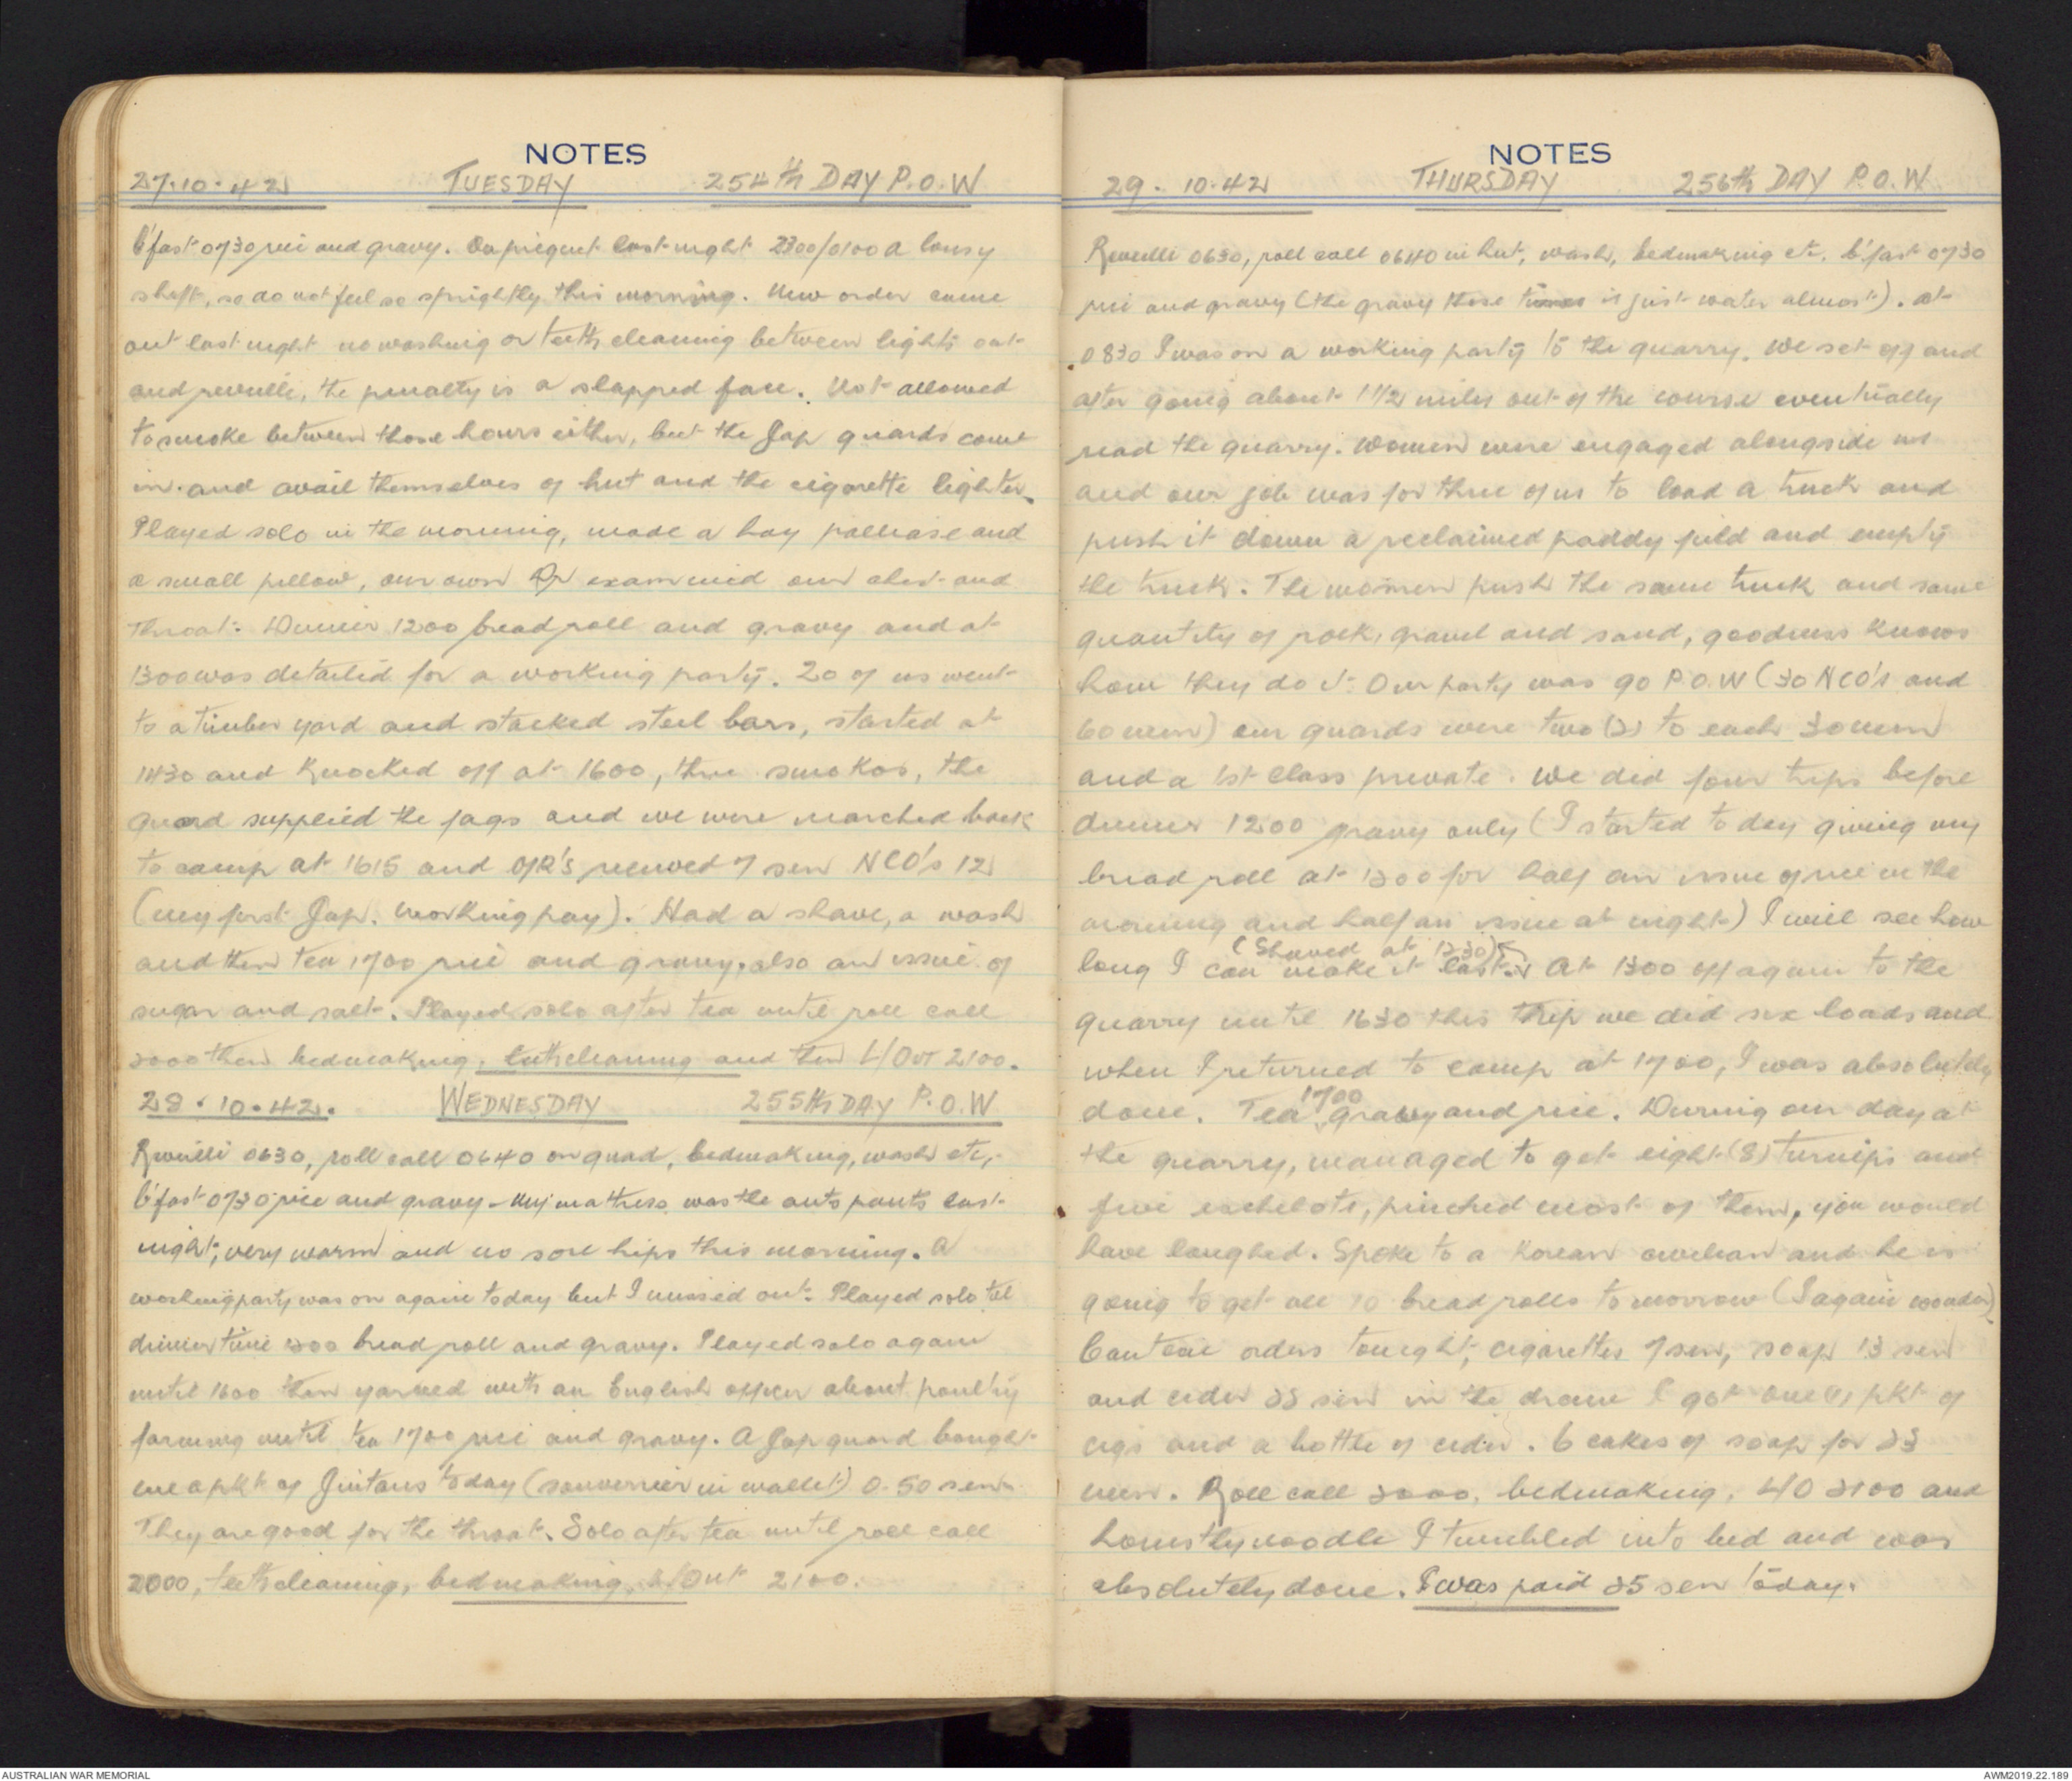 NOTES
27.10.42 TUESDAY 254th DAY P.O.W
b'fast 0730 rice and gravy. On picquet last night 2300/0100 a lousy
shift, so do not feel so sprightly this morning. New order came
out last night no washing or teeth cleaning between lights out
and reveille, the penalty is a slapped face. Not allowed
to smoke between those hours either, but the Jap guards come
in and avail themselves of hut and the cigarette lighter.
Played solo in the morning, made a hay palliase and
a small pillow, our own Dr examined our chest and
throat. Dinner 1200 bread roll and gravy and at
1300 was detailed for a working party. 20 of us went
to a timber yard and stacked steel bars, started at
1430 and knocked off at 1600, three smokos, the
guard supplied the fags and we were marched back
to camp at 1615 and O/R's received 7 sen NCO's 12
(my first Jap. working pay). Had a shave, a wash
and then tea 1700 rice and gravy, also an issue of
sugar and salt. Played solo after tea until roll call
2000 then bedmaking, teethcleaning and then L/Out 2100.
28.10.42. WEDNESDAY 255th DAY P.O.W
Reveilli 0630, roll call 0640 on quad, bedmaking, wash etc,
b'fast 0730 rice and gravy - My mattress was the ants pants last
night, very warm and no sore hips this morning. A
working party was on again today but I missed out. Played solo til
dinner time 1200 bread roll and gravy. Played solo again
until 1600 then yarned with an English officer about poultry
farming until tea 1700 rice and gravy. A Jap guard bought
me a pkt of Jintans today (souvernier in wallet) 0.50 sen
They are good for the throat. Solo after tea until roll call
2000, teethcleaning, bedmaking, L/Out 2100.
NOTES
29.10.42 THURSDAY 256th DAY P.O.W
Reveilli 0630, roll call 0640 in hut, wash, bedmaking etc, b'fast 0730
rice and gravy (the gravy these times is just water almost). At
0830 I was on a working party to the quarry. We set off and
after going about 1 1/2 miles out of the course eventually
read the quarry. Women were engaged alongside us
and our job was for three of us to load a truck and
push it down a reclaimed paddy field and empty
the truck. The women push the same truck and same
quantity of rock, gravel and sand, goodness knows
how they do it. Our party was 90 P.O.W (30 NCO's and
60 men) our guards were two (2) to each 30 men
and a 1st class private. We did four trips before
dinner 1200 gravy only (I started today giving my
bread roll at 1200 for half an issue of rice in the
morning and half an issue at night) I will see how
(Shaved at 1230)
long I can make it last. At 1300 off again to the
quarry until 1630 this trip we did six loads and
when I returned to camp at 1700, I was absolutely
done. Tea 1700 gravy and rice. During our day at
the quarry, managed to get eight (8) turnips and
five eschelots, pinched most of them, you would
have laughed. Spoke to a Korean civilian and he is
going to get me 10 bread rolls tomorrow (I again wonder)
Canteen orders tonight, cigarettes 7 sen, soap 13 sen
and cider 25 sen in the draw I got one (1) pkt of
cigs and a bottle of cider. 6 cakes of soap for 23
men. Roll call 2000, bedmaking, L/O 2100 and
honestly noodle I tumbled into bed and was
absolutely done. I was paid 25 sen today.
AUSTRALIAN WAR MEMORIAL
AWM2019.22.189